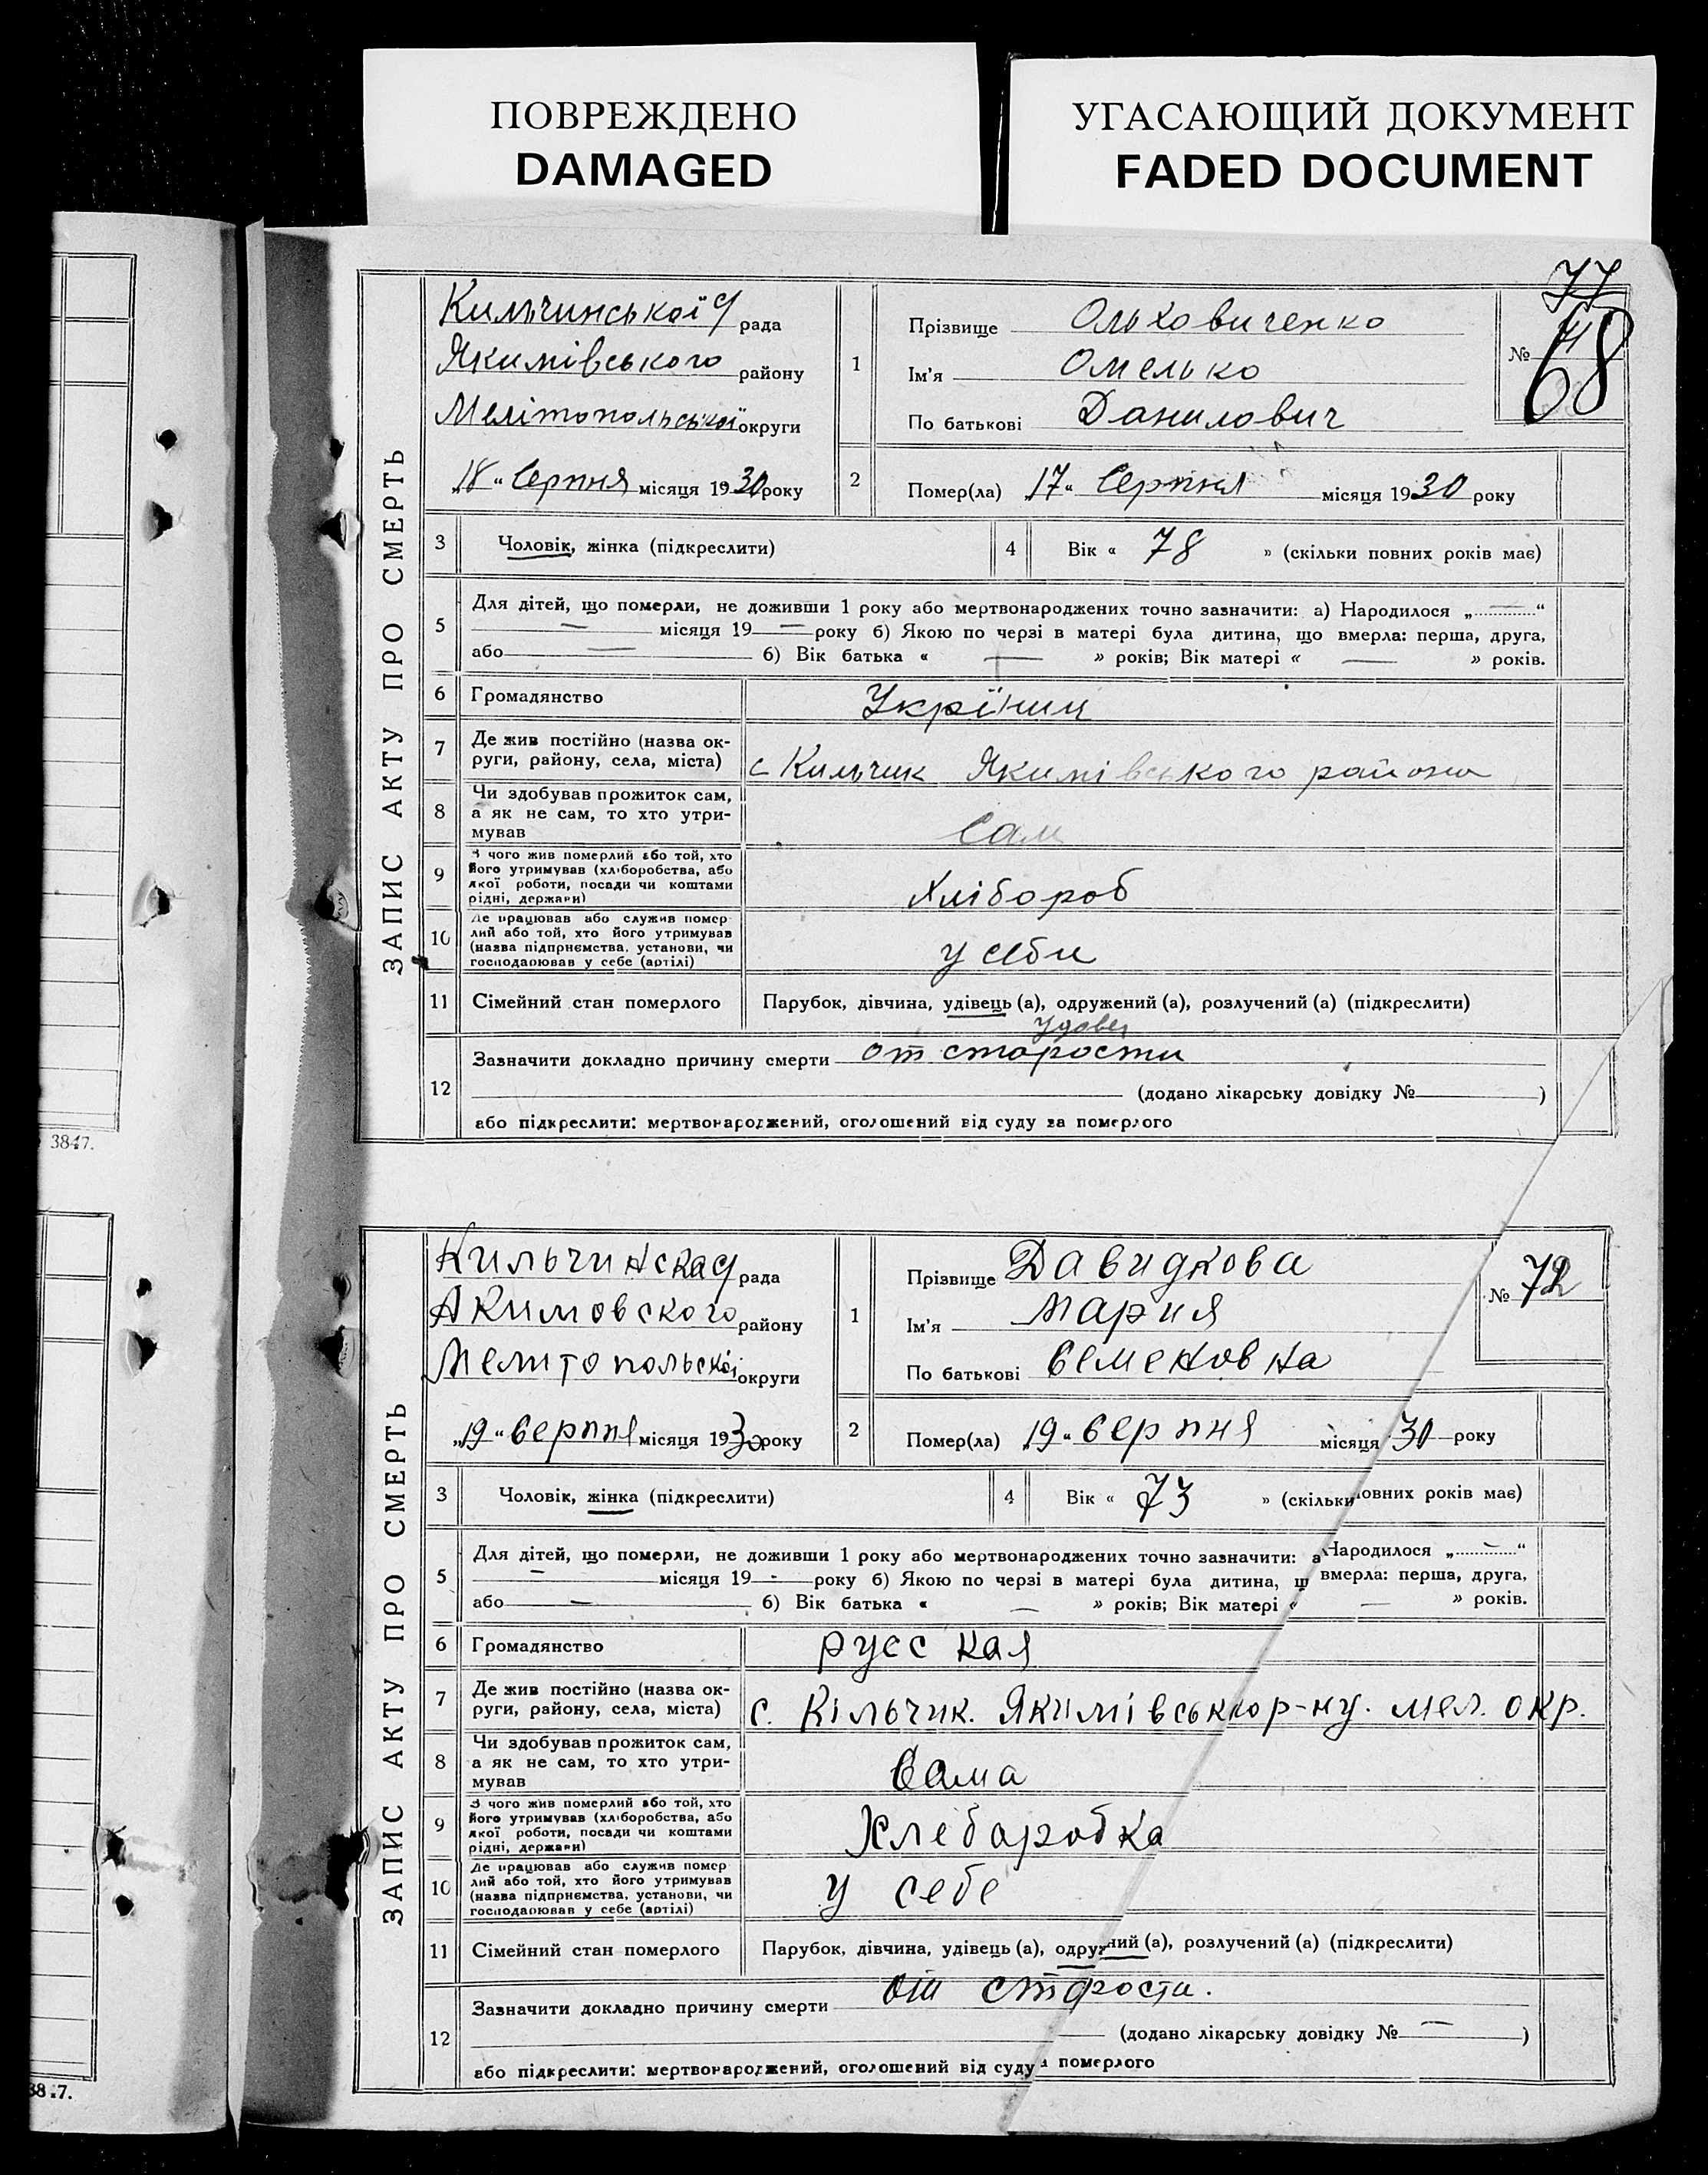 ПОВРЕЖДЕНО
DAMAGED
УГАСАЮЩИЙ ДОКУМЕНТ
FADED DOCUMENT
3847.
ЗАПИС АКТУ ПРО СМЕРТЬ
Кильчинської рада
Якимівського району
Мелітопольської округи
„18“ Серпня місяця 1930 року
1
Прізвище Ольховиченко
Ім'я Омелько
По батькові Данилович
№ 71
77
68
2
Помер(ла) 17“ Серпня місяця 1930 року
3 Чоловік, жінка (підкреслити)
4 Вік « 78 » (скільки повних років має)
5 Для дітей, що померли, не доживши 1 року або мертвонароджених точно зазначити: а) Народилося „ — “
— місяця 19 — року б) Якою по черзі в матері була дитина, що вмерла: перша, друга,
або — б) Вік батька « — » років; Вік матері « — » років.
6 Громадянство Укрїниц
7 Де жив постійно (назва ок-
руги, району, села, міста) с Кильчик Якимівського района
8 Чи здобував прожиток сам,
а як не сам, то хто утри-
мував сам
9 З чого жив померлий або той, хто
його утримував (хліборобства, або
якої роботи, посади чи коштами
рідні, держави) Хлібороб
10 Де працював або служив помер
лий або той, хто його утримував
(назва підприємства, установи, чи
господарював у себе (артілі) у себи
11 Сімейний стан померлого Парубок, дівчина, удівець (а), одружений (а), розлучений (а) (підкреслити)
удовец
12 Зазначити докладно причину смерти от старости
(додано лікарську довідку № )
або підкреслити: мертвонароджений, оголошений від суду за померлого
ЗАПИС АКТУ ПРО СМЕРТЬ
Кильчинская рада
Акимовского району
Мелитопольскої округи
„19“ серпня місяця 1930 року
1
Прізвище Давидкова
Ім'я Мария
По батькові Семеновна
№ 72
2
Помер(ла) „19“ серпня місяця 30 року
3 Чоловік, жінка (підкреслити)
4 Вік « 73 » (скільки повних років має)
5 Для дітей, що померли, не доживши 1 року або мертвонароджених точно зазначити: а Народилося „ — “
— місяця 19 - року б) Якою по черзі в матері була дитина, щ вмерла: перша, друга,
або — б) Вік батька « — » років; Вік матері « — » років.
6 Громадянство русская
7 Де жив постійно (назва ок-
руги, району, села, міста) с. Кільчик. Якимівськ р-ну. мел. окр.
8 Чи здобував прожиток сам,
а як не сам, то хто утри-
мував Сама
9 З чого жив померлий або той, хто
його утримував (хліборобства, або
якої роботи, посади чи коштами
рідні, держави) Хлеборобка
10 Де працював або служив помер
лий або той, хто його утримував
(назва підприємства, установи, чи
господарював у себе (артілі) у себе
11 Сімейний стан померлого Парубок, дівчина, удівець (а), одружений (а), розлучений (а) (підкреслити)
12 Зазначити докладно причину смерти от старости.
(додано лікарську довідку № — )
або підкреслити: мертвонароджений, оголошений від суду а померлого